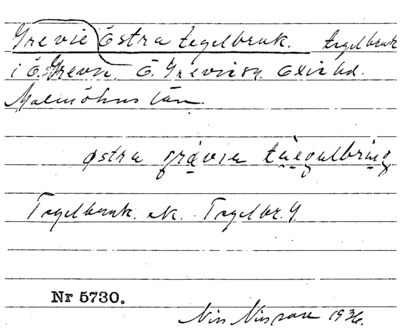 Grevie Östra tegelbruk. tegelbruk
i Ö. Grevie, Ö. Grevie sn. Oxie hd.
Malmöhus län.
östra grävia täegulbring
Tegelbruk. ek. Tegelbr. 9
Nr 5730.
Nils Nilsson 1936.